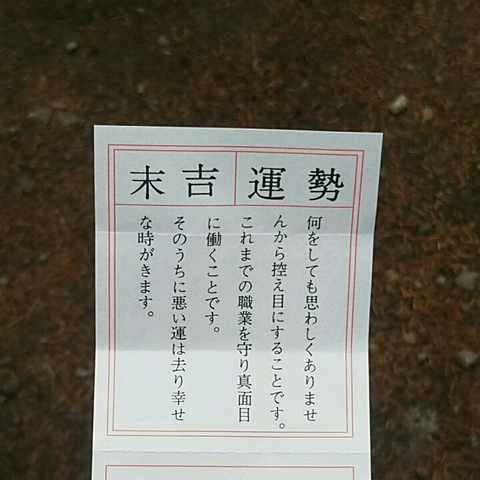 運勢
末吉
何をしても思わしくありませ
んから控え目にすることです。
これまでの職業を守り真面目
に働くことです。
そのうちに悪い運は去り幸せ
な時がきます。